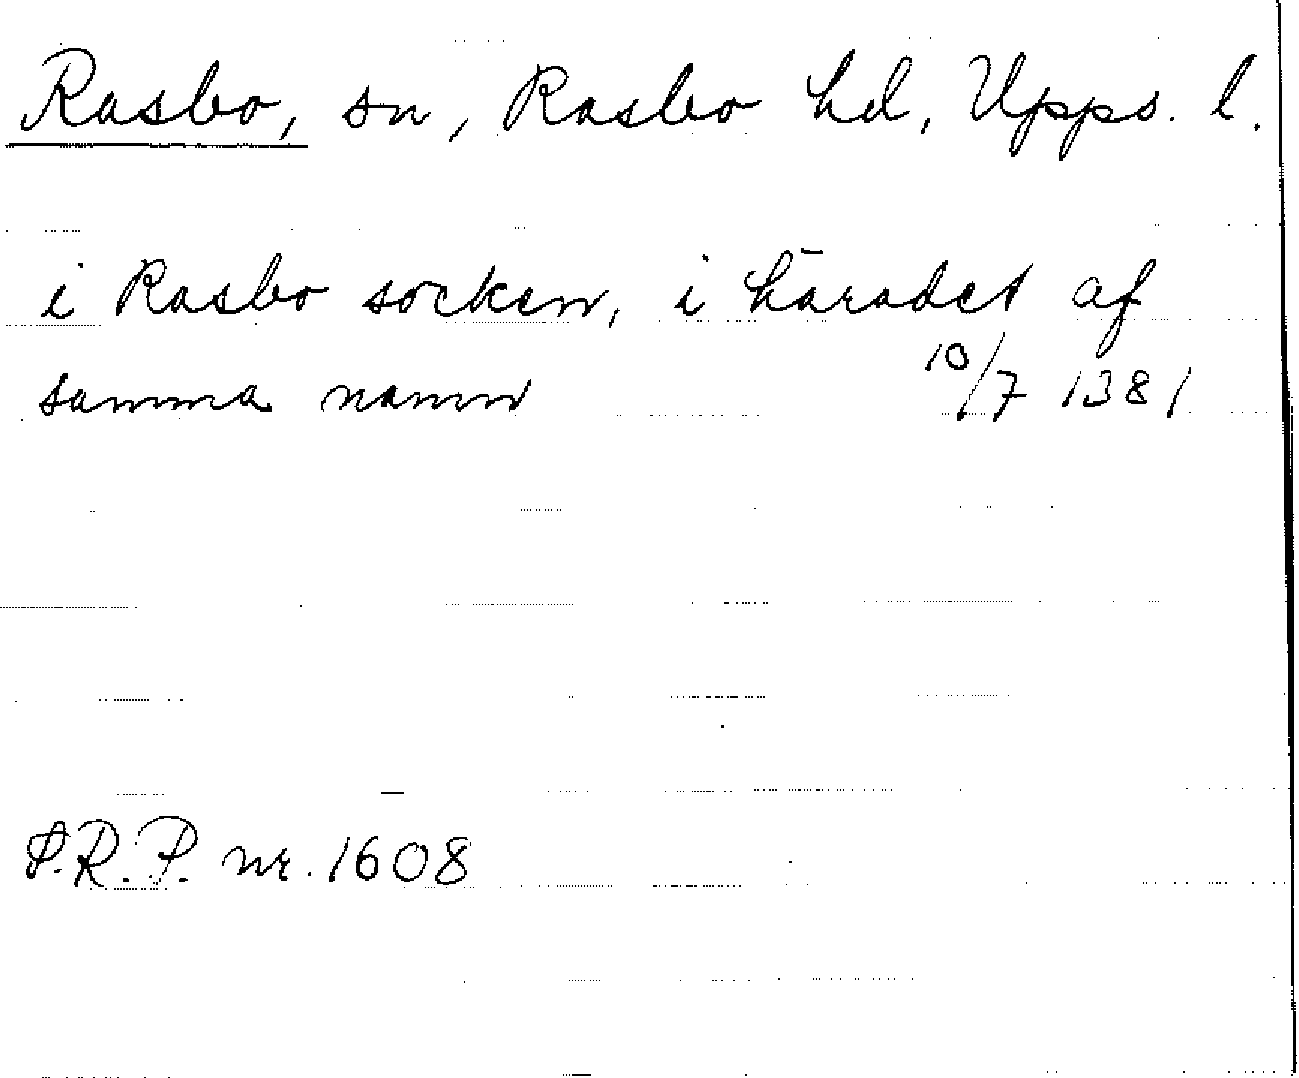 Rasbo, sn, Rasbo hd, Upps. l.
i Rasbo socken, i häradet af
samma namn 10/7 1381
S.R.P. nr. 1608